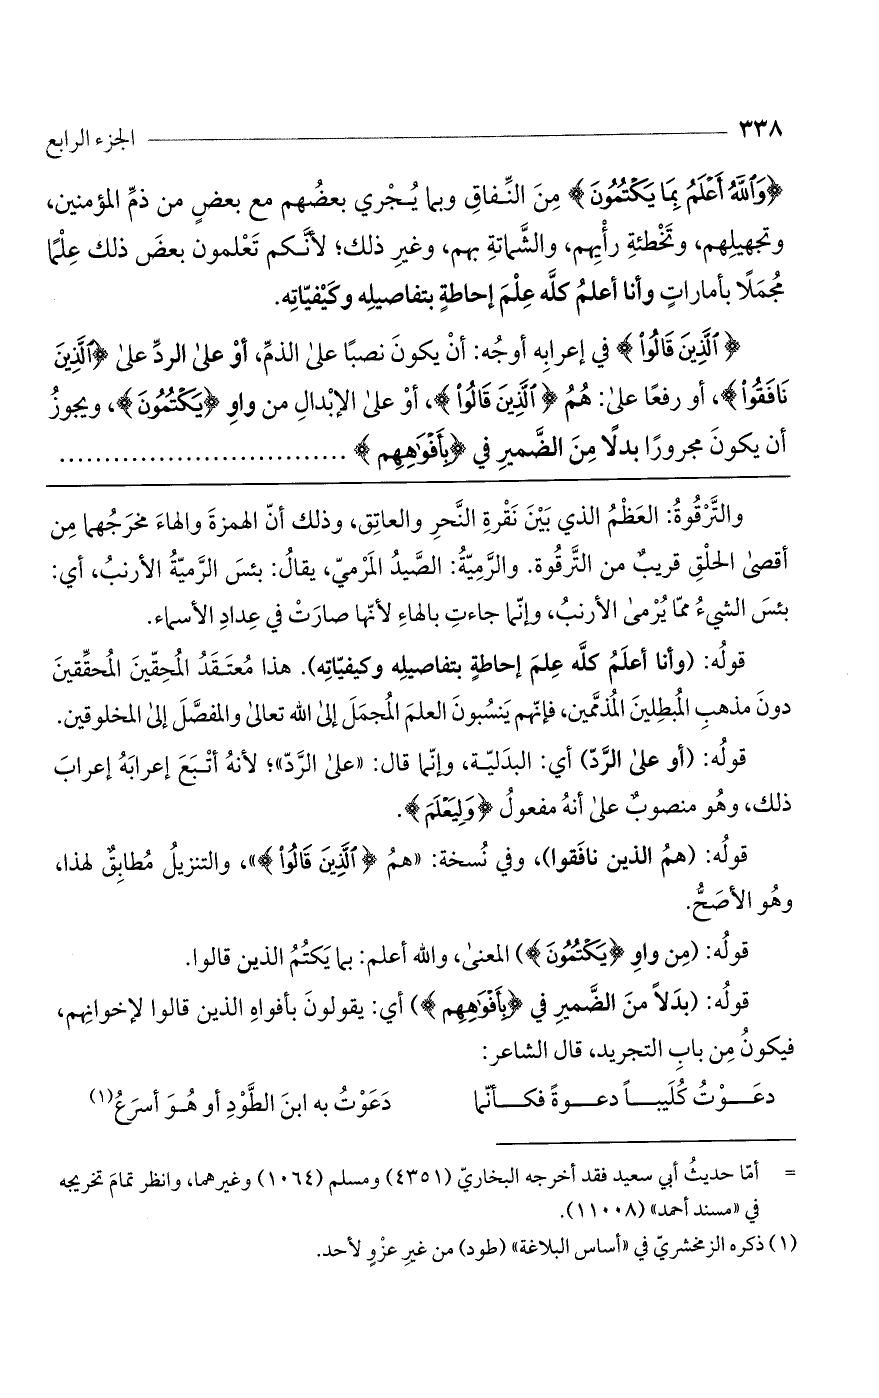 ٣٣٨ الجزء الرابع
﴿وَٱللَّهُ أَعْلَمُ بِمَا يَكْتُمُونَ﴾ مِنَ النِّفاقِ وبما يُجْري بعضُهم مع بعضٍ من ذمِّ المؤمنين،
وتجهيلِهم، وتَخْطئةِ رأْيِهم، والشَّماتةِ بهم، وغيرِ ذلك؛ لأنَّكم تَعْلمون بعضَ ذلك عِلْمًا
مُجمَلًا بأماراتٍ وأنا أعلمُ كلَّه عِلْمَ إحاطةٍ بتفاصيلِه وكَيْفيّاتِه.
﴿ٱلَّذِينَ قَالُوا۟﴾ في إعرابِه أوجُه: أنْ يكونَ نصبًا علىٰ الذمِّ، أوْ علىٰ الردِّ علىٰ ﴿ٱلَّذِينَ
نَافَقُوا۟﴾، أو رفعًا علىٰ: هُمُ ﴿ٱلَّذِينَ قَالُوا۟﴾، أوْ علىٰ الإبْدالِ من واوِ ﴿يَكْتُمُونَ﴾، ويجوزُ
أن يكونَ مجرورًا بدلًا مِنَ الضَّميرِ في ﴿بِأَفْوَٰهِهِم﴾ ................................
والتَّرْقُوةُ: العَظْمُ الذي بَيْنَ نَقْرةِ النَّحرِ والعاتِق، وذلك أنّ الهمزةَ والهاءَ مخرَجُهما مِن
أقصىٰ الحلْقِ قريبٌ من التَّرقُوة. والرَّمِيّةُ: الصَّيدُ المَرْميّ، يقالُ: بئسَ الرَّميّةُ الأرنبُ، أي:
بئسَ الشيءُ ممّا يُرْمىٰ الأرنبُ، وإنّما جاءتِ بالهاءِ لأنّها صارَتْ في عِدادِ الأسماء.
قولُه: (وأنا أعلَمُ كلَّه عِلمَ إحاطةٍ بتفاصيلِه وكيفيّاتِه). هذا مُعتَقَدُ المُحِقّينَ المُحقِّقينَ
دونَ مذهبِ المُبطِلينَ المُذمَّمين، فإنّهم يَنسُبونَ العلمَ المُجمَلَ إلىٰ الله تعالىٰ والمفصَّلَ إلىٰ المخلوقين.
قولُه: (أو علىٰ الرَّدّ) أي: البدَليّة، وإنّما قال: «علىٰ الرَّدّ»؛ لأنهُ أتْبَعَ إعرابَهُ إعرابَ
ذلك، وهُو منصوبٌ علىٰ أنهُ مفعولُ ﴿وَلِيَعْلَمَ﴾.
قولُه: (همُ الذين نافَقوا)، وفي نُسخة: «همُ ﴿ٱلَّذِينَ قَالُوا۟﴾»، والتنزيلُ مُطابِقٌ لهذا،
وهُو الأصَحُّ.
قولُه: (مِن واوِ ﴿يَكْتُمُونَ﴾) المعنىٰ، والله أعلم: بما يَكتُمُ الذين قالوا.
قولُه: (بدَلاً منَ الضَّميرِ في ﴿بِأَفْوَٰهِهِم﴾) أي: يقولونَ بأفواهِ الذين قالوا لإخوانِهم،
فيكونُ مِن بابِ التجريد، قال الشاعر:
دعَـــوْتُ كُلَيبـــاً دعـــوةً فكـــأنّما دَعَوْتُ به ابنَ الطَّوْدِ أو هُـوَ أسرَعُ(١)
= أمّا حديثُ أبي سعيد فقد أخرجه البخاريّ (٤٣٥١) ومسلم (١٠٦٤) وغيرهما، وانظر تمامَ تخريجه
في «مسند أحمد» (١١٠٠٨).
(١) ذكره الزمخشريّ في «أساس البلاغة» (طود) من غيرِ عزْوٍ لأحد.